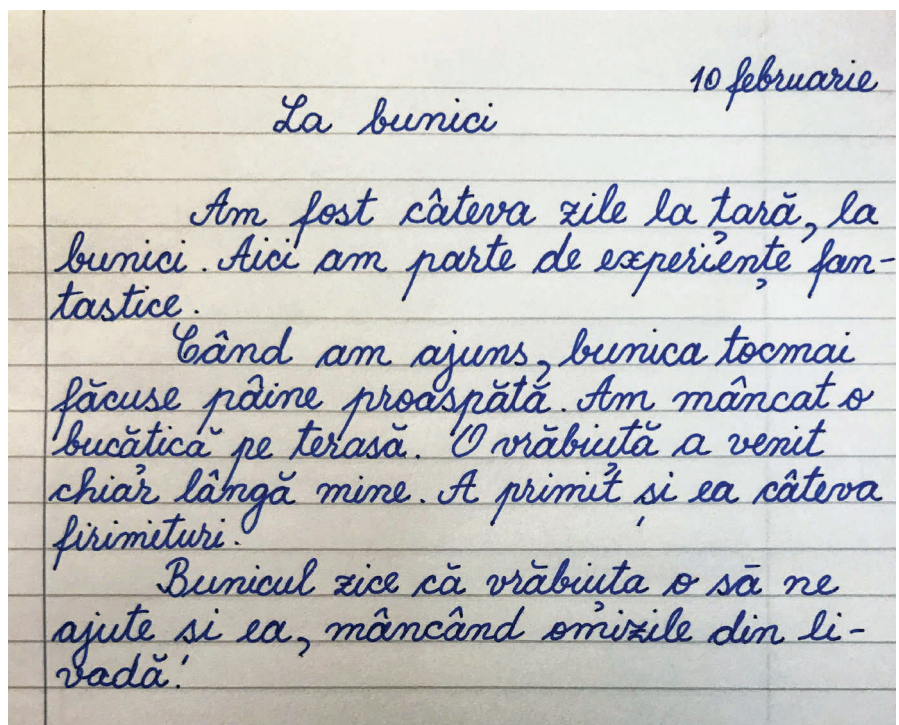 10 februarie
La bunici
Am fost câteva zile la țară, la
bunici. Aici am parte de experiențe fan-
tastice.
Când am ajuns, bunica tocmai
făcuse pâine proaspătă. Am mâncat o
bucățică pe terasă. O vrăbiuță a venit
chiar lângă mine. A primit și ea câteva
firimituri.
Bunicul zice că vrăbiuța o să ne
ajute și ea, mâncând omizile din li-
vadă.